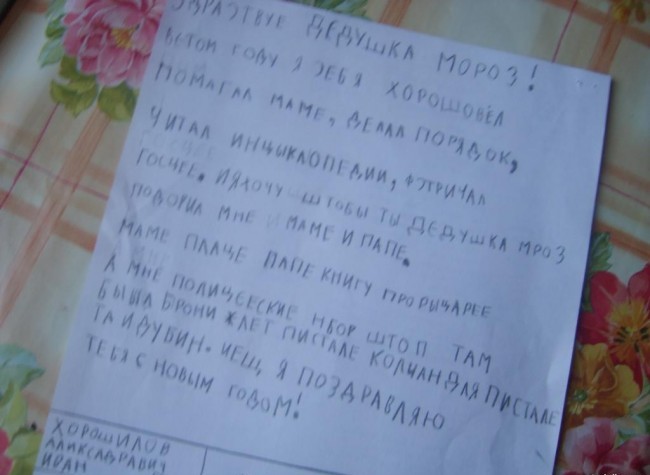 ЗДРАСТВУЕ ДЕДУШКА МОРОЗ!
ВЕТОМ ГОДУ Я СЕБЯ ХОРОШОВЁЛ
ПОМАГАЛ МАМЕ, ДЕЛАЛ ПОРЯДОК,
ЧИТАЛ ИНЦЫКЛОПЕДИИ,
ГОСЧЕЕ. ИЯХОЧУ ШТОБЫ ТЫ ДЕДУШКА МРОЗ
ПОДОРИЛ МНЕ И МАМЕ И ПАПЕ.
МАМЕ ПЛАЦЕ ПАПЕ КНИГУ ПРО РЫЦАРЕЕ
А МНЕ ПОЛИЦЕЕСКИЕ НБОР ШТОП ТАМ
БЫЛА БРОНИ ЖЛЕТ ПИСТАЛЕ КОЛЧАН ДЛЯ ПИСТАЛЕ
ТА И ДУБИН. ИЕЩ Я ПОЗДРАВЛЯЮ
ТЕБЯ С НОВЫМ ГОДОМ!
ХОРОШИЛОВ
АЛИКСАДРАВИЧ
ИВАН